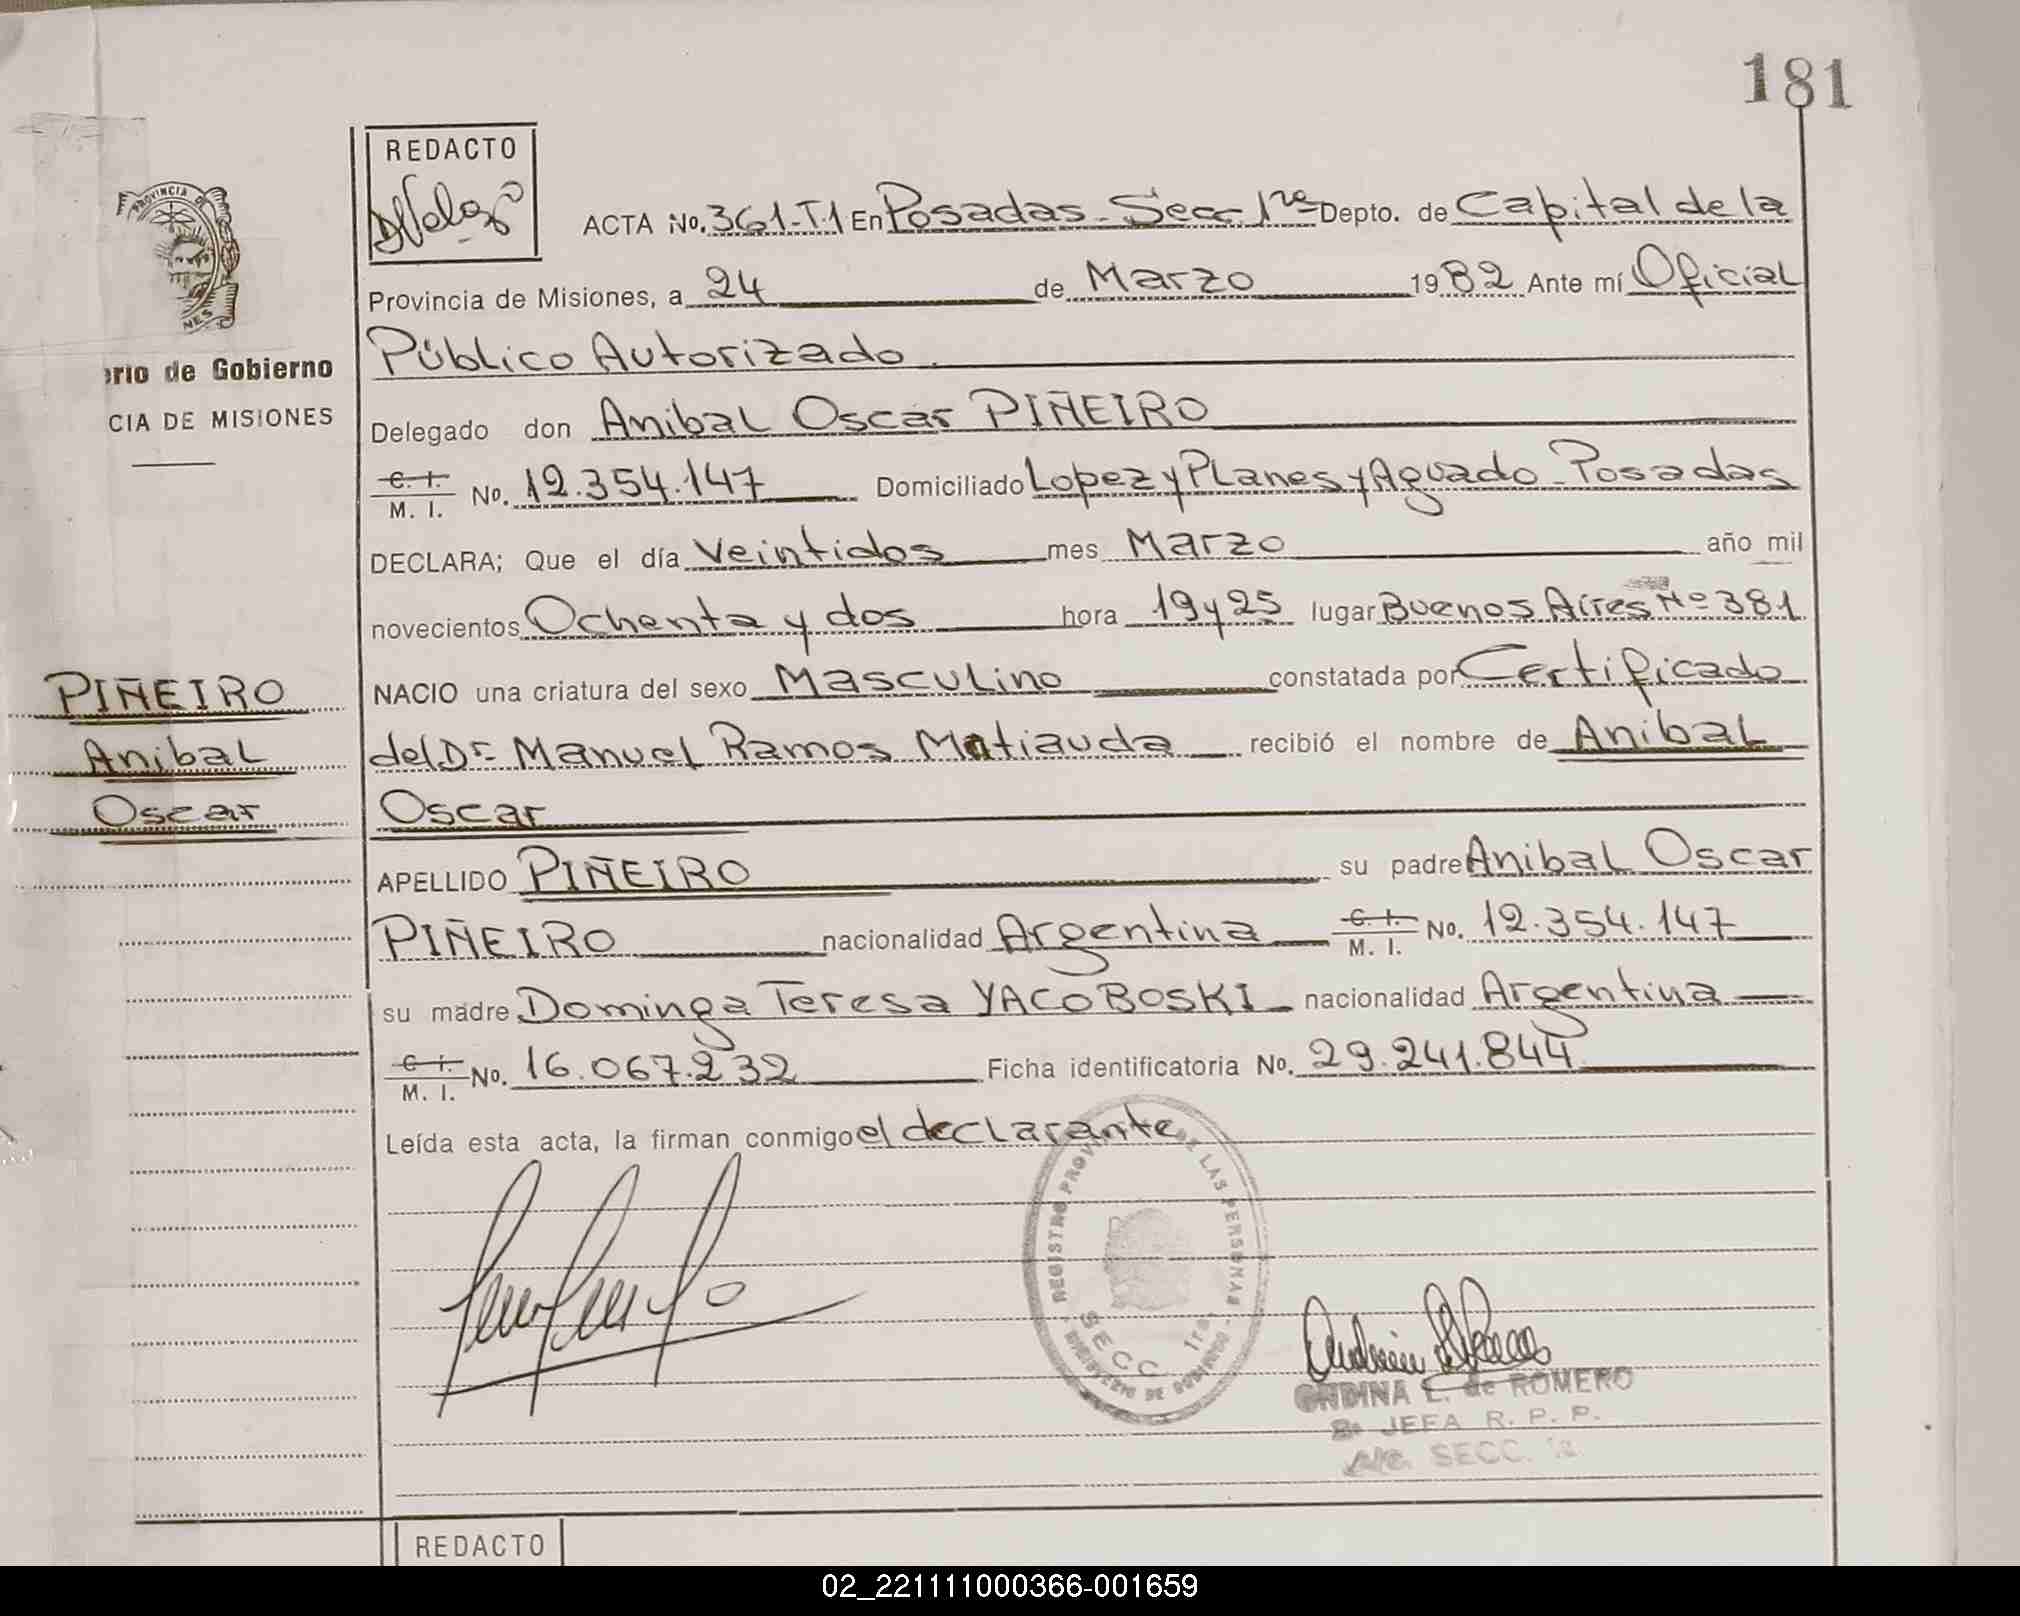 181
REDACTO
ACTA No. 361-T.1 En Posadas - Secc. 1ra Depto. de Capital de la
Provincia de Misiones, a 24 de Marzo 1982 Ante mí Oficial
Público Autorizado.
erio de Gobierno
CIA DE MISIONES
Delegado don Anibal Oscar PIÑEIRO
C. I. M. I. No. 12.354.147 Domiciliado Lopez y Planes y Aguado - Posadas
DECLARA; Que el día Veintidos mes Marzo año mil
novecientos Ochenta y dos hora 19 y 25 lugar Buenos Aires Nº 381
NACIO una criatura del sexo Masculino constatada por Certificado
del Dr. Manuel Ramos Matiauda recibió el nombre de Anibal
Oscar
PIÑEIRO
Anibal
Oscar
APELLIDO PIÑEIRO su padre Anibal Oscar
PIÑEIRO nacionalidad Argentina C. I. M. I. No. 12.354.147
su madre Dominga Teresa YACOBOSKI nacionalidad Argentina
C. I. M. I. No. 16.067.232 Ficha identificatoria No. 29.241.844
Leída esta acta, la firman conmigo el declarante
REGISTRO PROV DE LAS PERSONAS
SECC 1ra.
MINISTERIO DE GOBIERNO
ONDINA E. de ROMERO
JEFA R. P. P.
SECC. 1a
REDACTO
02_221111000366-001659